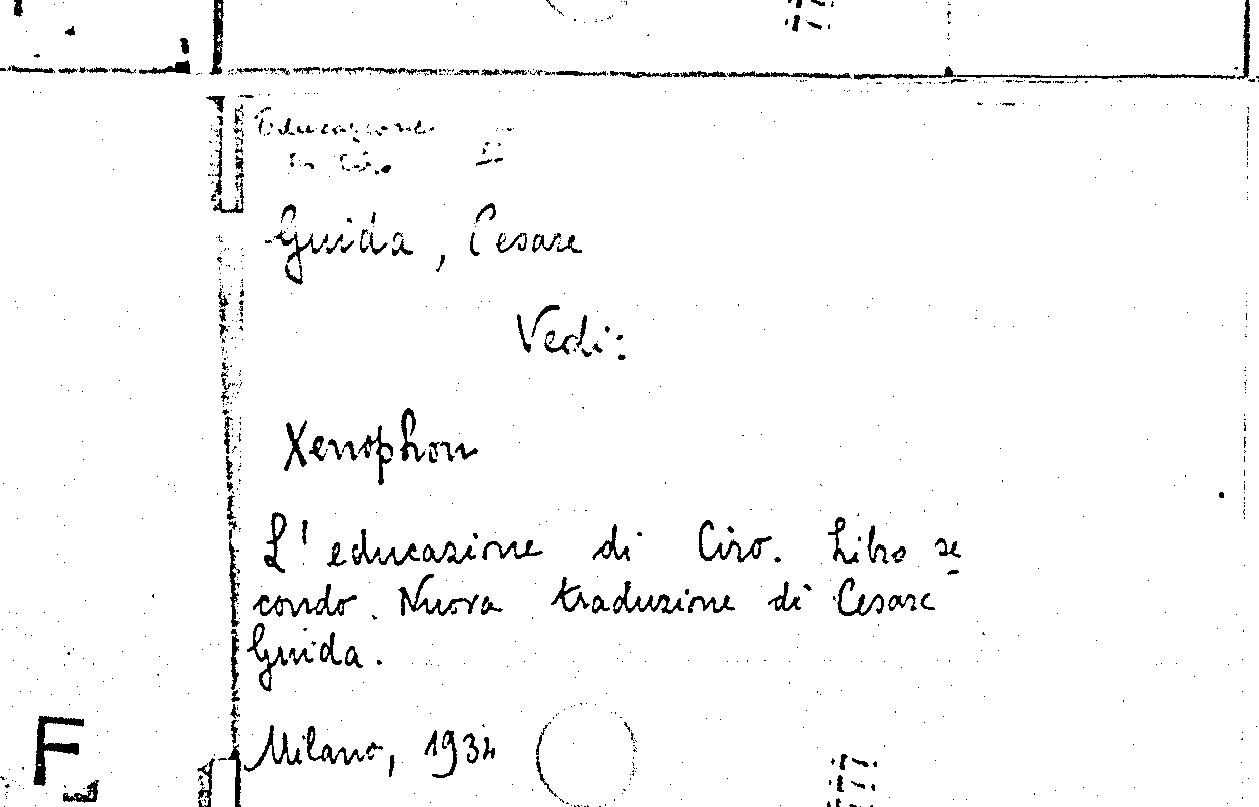 Educazione
di Ciro II
Guida, Cesare
Vedi:
Xenophon
L'educazione di Ciro. Libro se
condo. Nuova traduzione di Cesare
Guida.
Milano, 1934
F